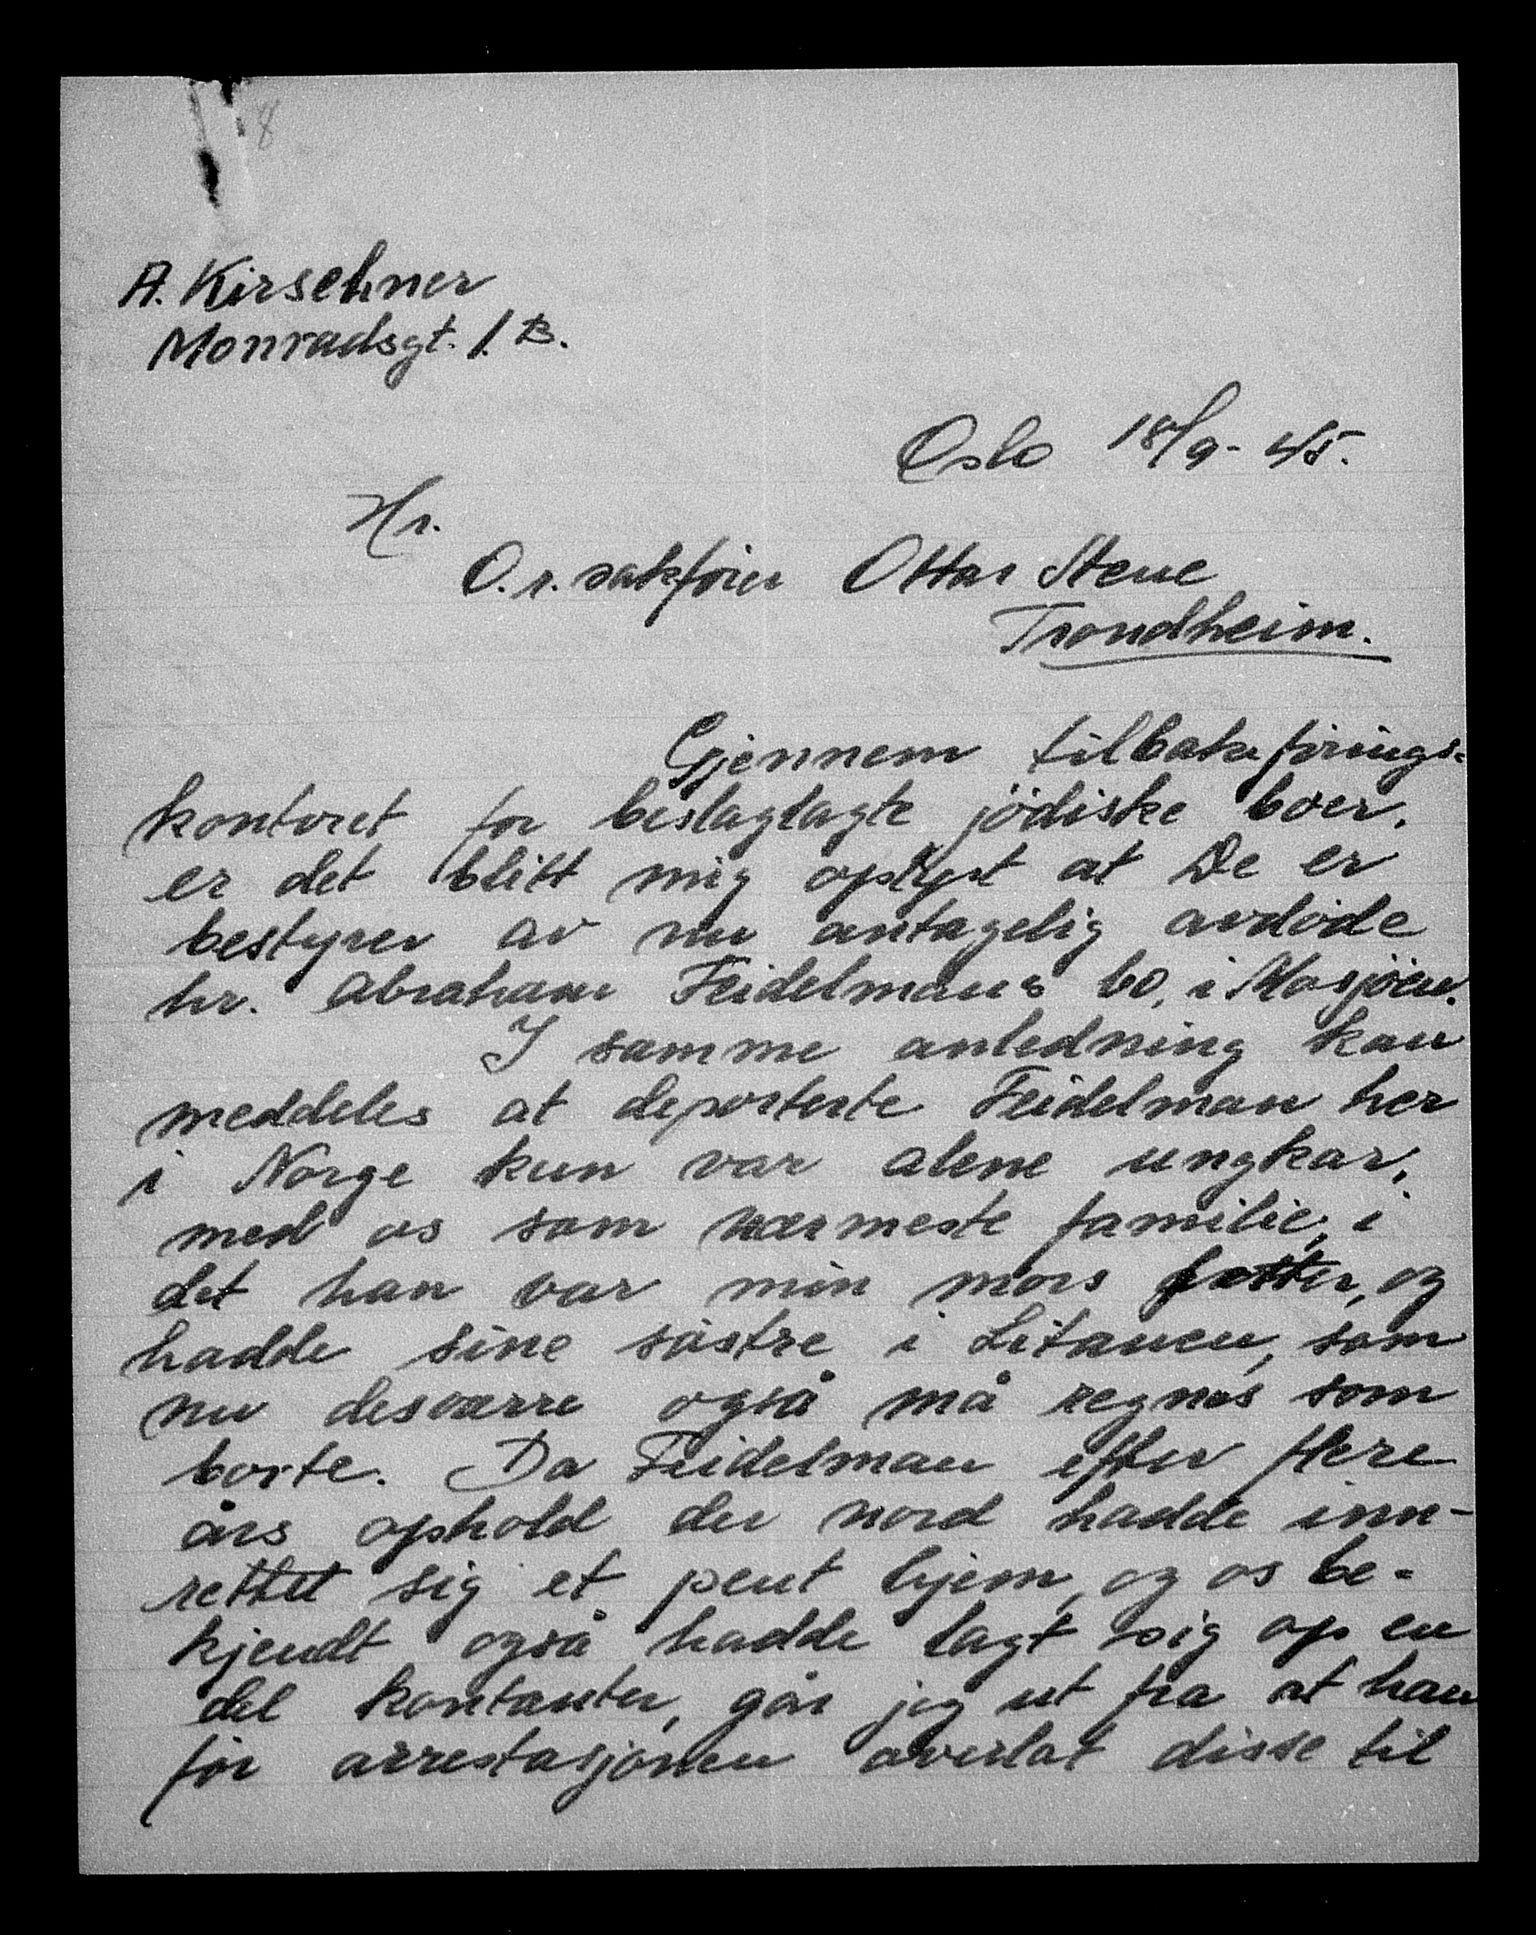 8
A. Kirschner
Monradsgt. 1. B.
Oslo 18/9- 45.
Hr.
O.r.sakfører Ottar Stene
Trondheim.
Gjennem tilbakeførings-
kontoret for beslaglagte jödiske boer.
er det blitt mig oplyst at De er
bestyrer av nu antagelig avdöde
hr. Abraham Feidelmans bo, i Mosjöen.
I samme anledning kan
meddeles at deporterte Feidelman her
i Norge kun var alene ungkar,
med os som nærmeste familie, i
det han var min mors fetter, og
hadde sine söstre i Litauen, som
nu desværre også må regnes som
borte. Da Feidelman efter flere
års ophold der nord hadde inn-
rettet sig et pent hjem, og os be-
kjendt også hadde lagt sig op en
del kontanter, går jeg ut fra at han
för arrestasjonen overlat disse til